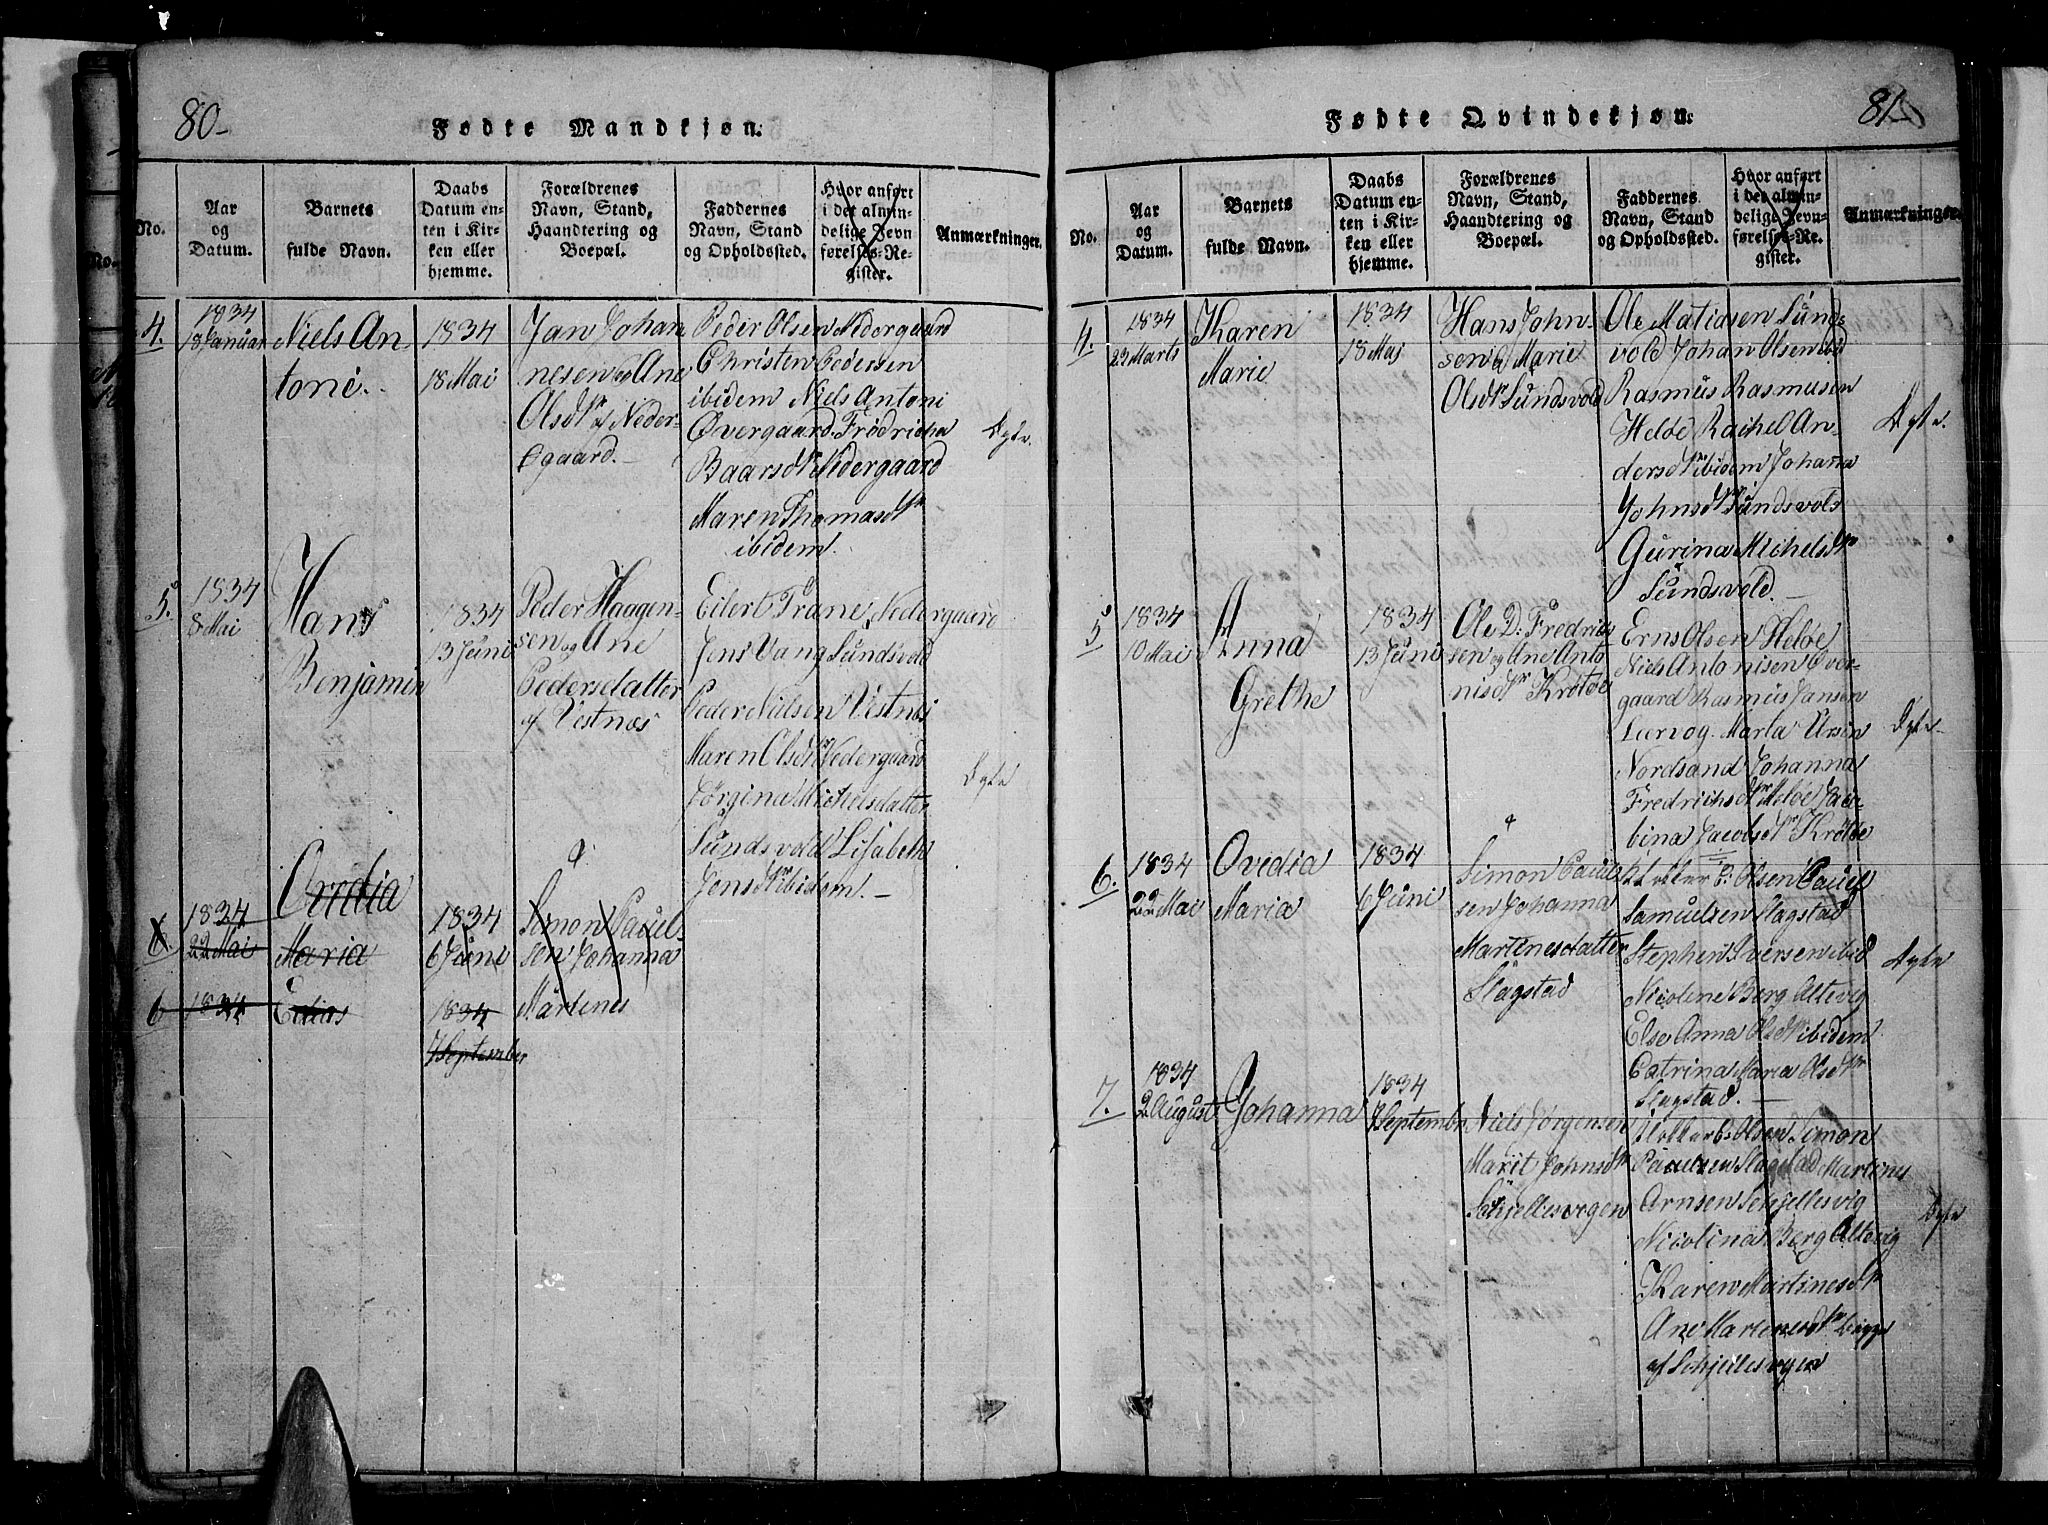 80-
Fødte Mandkjøn.
No.
Aar
og
Datum.
Barnets
fulde Navn.
Daabs
Datum en-
ten i Kir-
ken eller
hjemme.
Forældrenes
Navn, Stand,
Haandtering og
Boepæl.
Faddernes
Navn, Stand
og Opholdssted.
Hvor anført
i det almin-
delige Jevn
førelses-Re-
gister.
Anmærkninger.
4.
1834
18 Januar
Niels An
toni.
1834
18 Mai
Jan Johan
nesen og Ane
Olsdtr af Neder-
gaard.
Peder Olsen Nedergaard
Christen Pedersen
ibidem Niels Antoni
Øvergaard. Frodricha
Baarsdtr Nedergaard
Maren Thomasdtr
ibidem.
5.
1834
8 Mai
Hans
Benjamin
1834
13 Juni
Peder Haagen-
sen og Ane
Pedersdatter
af Vestnæs
Eilert Trane, Nedergaard
Jens Vang Sundsvold
Peder Nielsen Vestnes
Maren Olsdtr Nedergaard
Jørgina Michelsdatter
Sundsvold Lisabeth
Jensdtr ibidem.
1834
22 Mai
Ovedia
Maria
1834
6 Juni
Simon Paul-
sen Johanna
Martenes
6
1834
Edias
1834
7 September
81
Fødte Qvindekjøn.
No.
Aar
og
Datum.
Barnets
fulde Navn.
Daabs
Datum en-
ten i Kir-
ken eller
hjemme.
Forældrenes
Navn, Stand,
Haandtering og
Boepæl.
Faddernes
Navn, Stand
og Opholdssted.
Hvor anført
i det almin-
delige Jevn-
førelses-Re-
gister.
Anmærkninger.
4.
1834
23 Marts
Karen
Marie
1834
18 Maj
Hans John-
sen Marie
Olsdtr Sundsvold
Ole Matiasen Sunds
vold Johan Olsen ibid
Rasmus Rasmusen
Heløe Rachel An-
dersdtr ibidem Johanna
Johnsdtr Sundsvols
Gurina Michelsdtr
Sundsvold.
5
1834
10 Mai
Anna
Grethe
1834
13 Juni
Ole D: Fredrics
sen og Ane Anto
nisdtr Krøtøe
Erns Olsen Heløe
Niels Antonisen Over-
gaard Rasmus Jansen
Marta Ursin
Nordsand Johanna
Fredrichsdtr Heløe Jaco-
bina Jacobsdtr Krøtøe
6.
1834
22 Mai
Ovedia
Maria
1834
6 Juni
Simon Paul
sen Johanna
Martenesdatter
Slagstad
Olsen Pauel
Samuelsen Slagstad
Stephen Iversen ibid
Nicoline Berg Altevig
Else Anna Olsdtr ibidem
Catrina Maria Olsdtr
Slagstad.
7.
1834
2 August
Johanna
1834
7 Septembr
Niels Jørgensen
Marit Johnsdtr
Schjellesvegen
Olsen Simon
Paulsen Slagstad Martinus
Arnsen Schjellesvig
Nicolina Berg Altevig
Karen Martinesdtr
Ane Martenesdtr
af Schjellesvgen